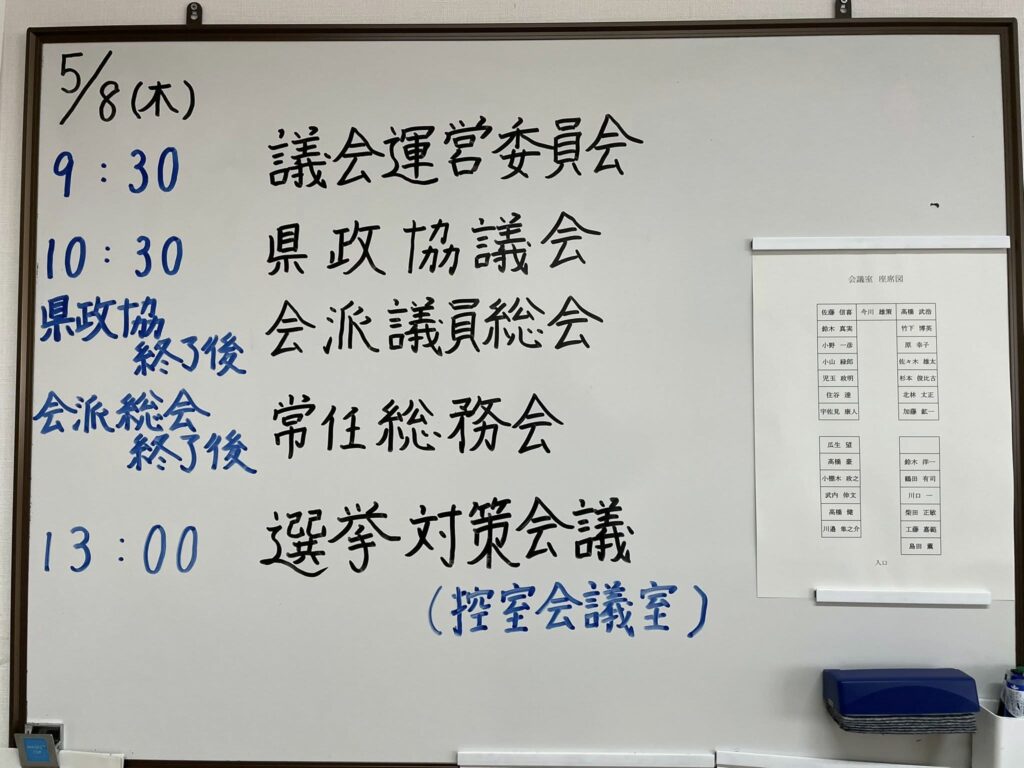 5/8(木)
9:30 議会運営委員会
10:30 県政協議会
県政協終了後 会派議員総会
会派総会終了後 常任総務会
13:00 選挙対策会議
(控室会議室)
会議室 座席図
佐藤 信喜 今川 雄策 高橋 武浩
鈴木 真実 竹下 博英
小野 一彦 原 幸子
小山 緑郎 佐々木 雄太
児玉 政明 杉本 俊比古
住谷 達 北林 丈正
宇佐見 康人 加藤 鉱一
瓜生 望
高橋 豪 鈴木 洋一
小棚木 政之 鶴田 有司
武内 伸文 川口 一
高橋 健 柴田 正敏
川邉 隼之介 工藤 嘉範
島田 薫
入口